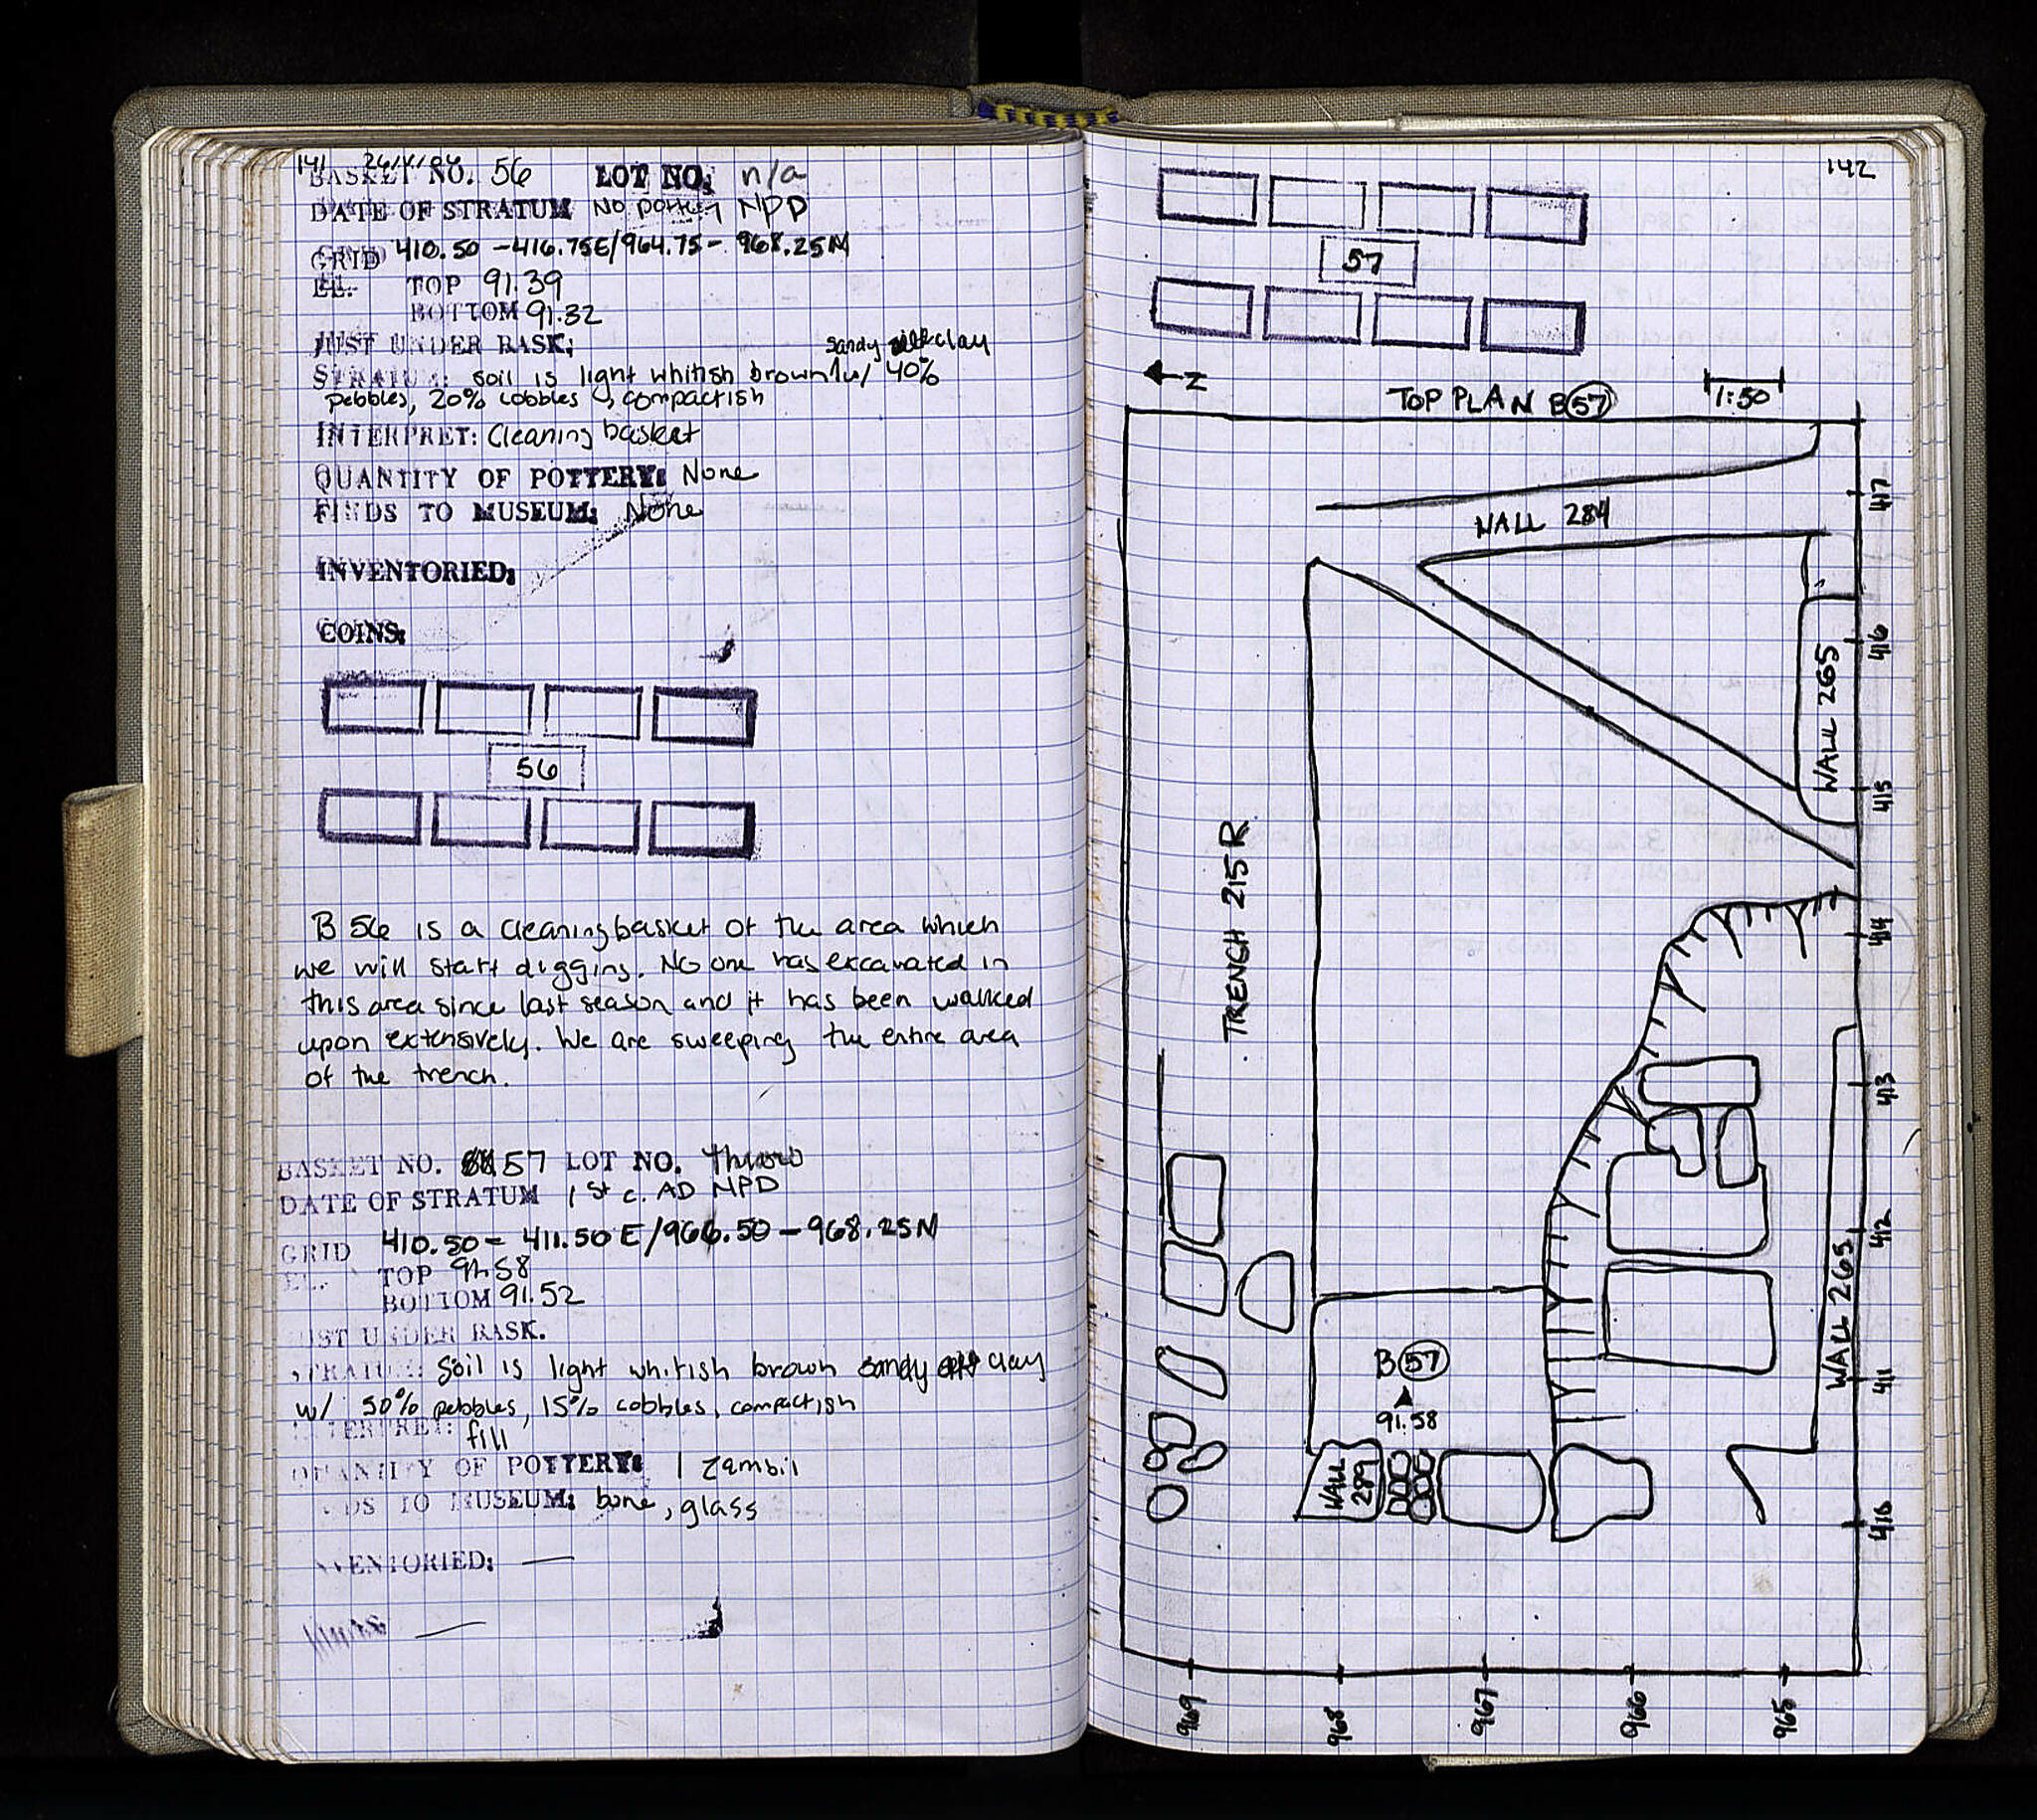 141 26/V/04
BASKET NO. 56 LOT NO: n/a
DATE OF STRATUM No pottery NPD
GRID 410.50 - 416.75E/964.75 - 968.25N
EL. TOP 91.39
BOTTOM 91.32
JUST UNDER BASK:
sandy clay
STRATUM: soil is light whitish brown w/ 40%
pebbles, 20% cobbles, compactish
INTERPRET: Cleaning basket
QUANTITY OF POTTERY: None
FINDS TO MUSEUM: None
INVENTORIED:
COINS:
56
B 56 is a cleaning basket of the area which
we will start digging. No one has excavated in
this area since last season and it has been walked
upon extensively. We are sweeping the entire area
of the trench.
BASKET NO. 57 LOT NO. throw
DATE OF STRATUM 1st c. AD NPD
GRID 410.50 - 411.50 E/966.50 - 968.25N
EL. TOP 91.58
BOTTOM 91.52
JUST UNDER BASK.
STRATUM: Soil is light whitish brown sandy clay
w/ 50% pebbles, 15% cobbles, compactish
INTERPRET: fill
QUANTITY OF POTTERY: 1 zambil
FINDS TO MUSEUM: bone, glass
INVENTORIED: —
COINS —
142
57
N
TOP PLAN B57
1:50
WALL 284
417
416
WALL 265
415
TRENCH 215R
414
413
412
WALL 265
411
B57
91.58
WALL
289
410
969
968
967
966
965